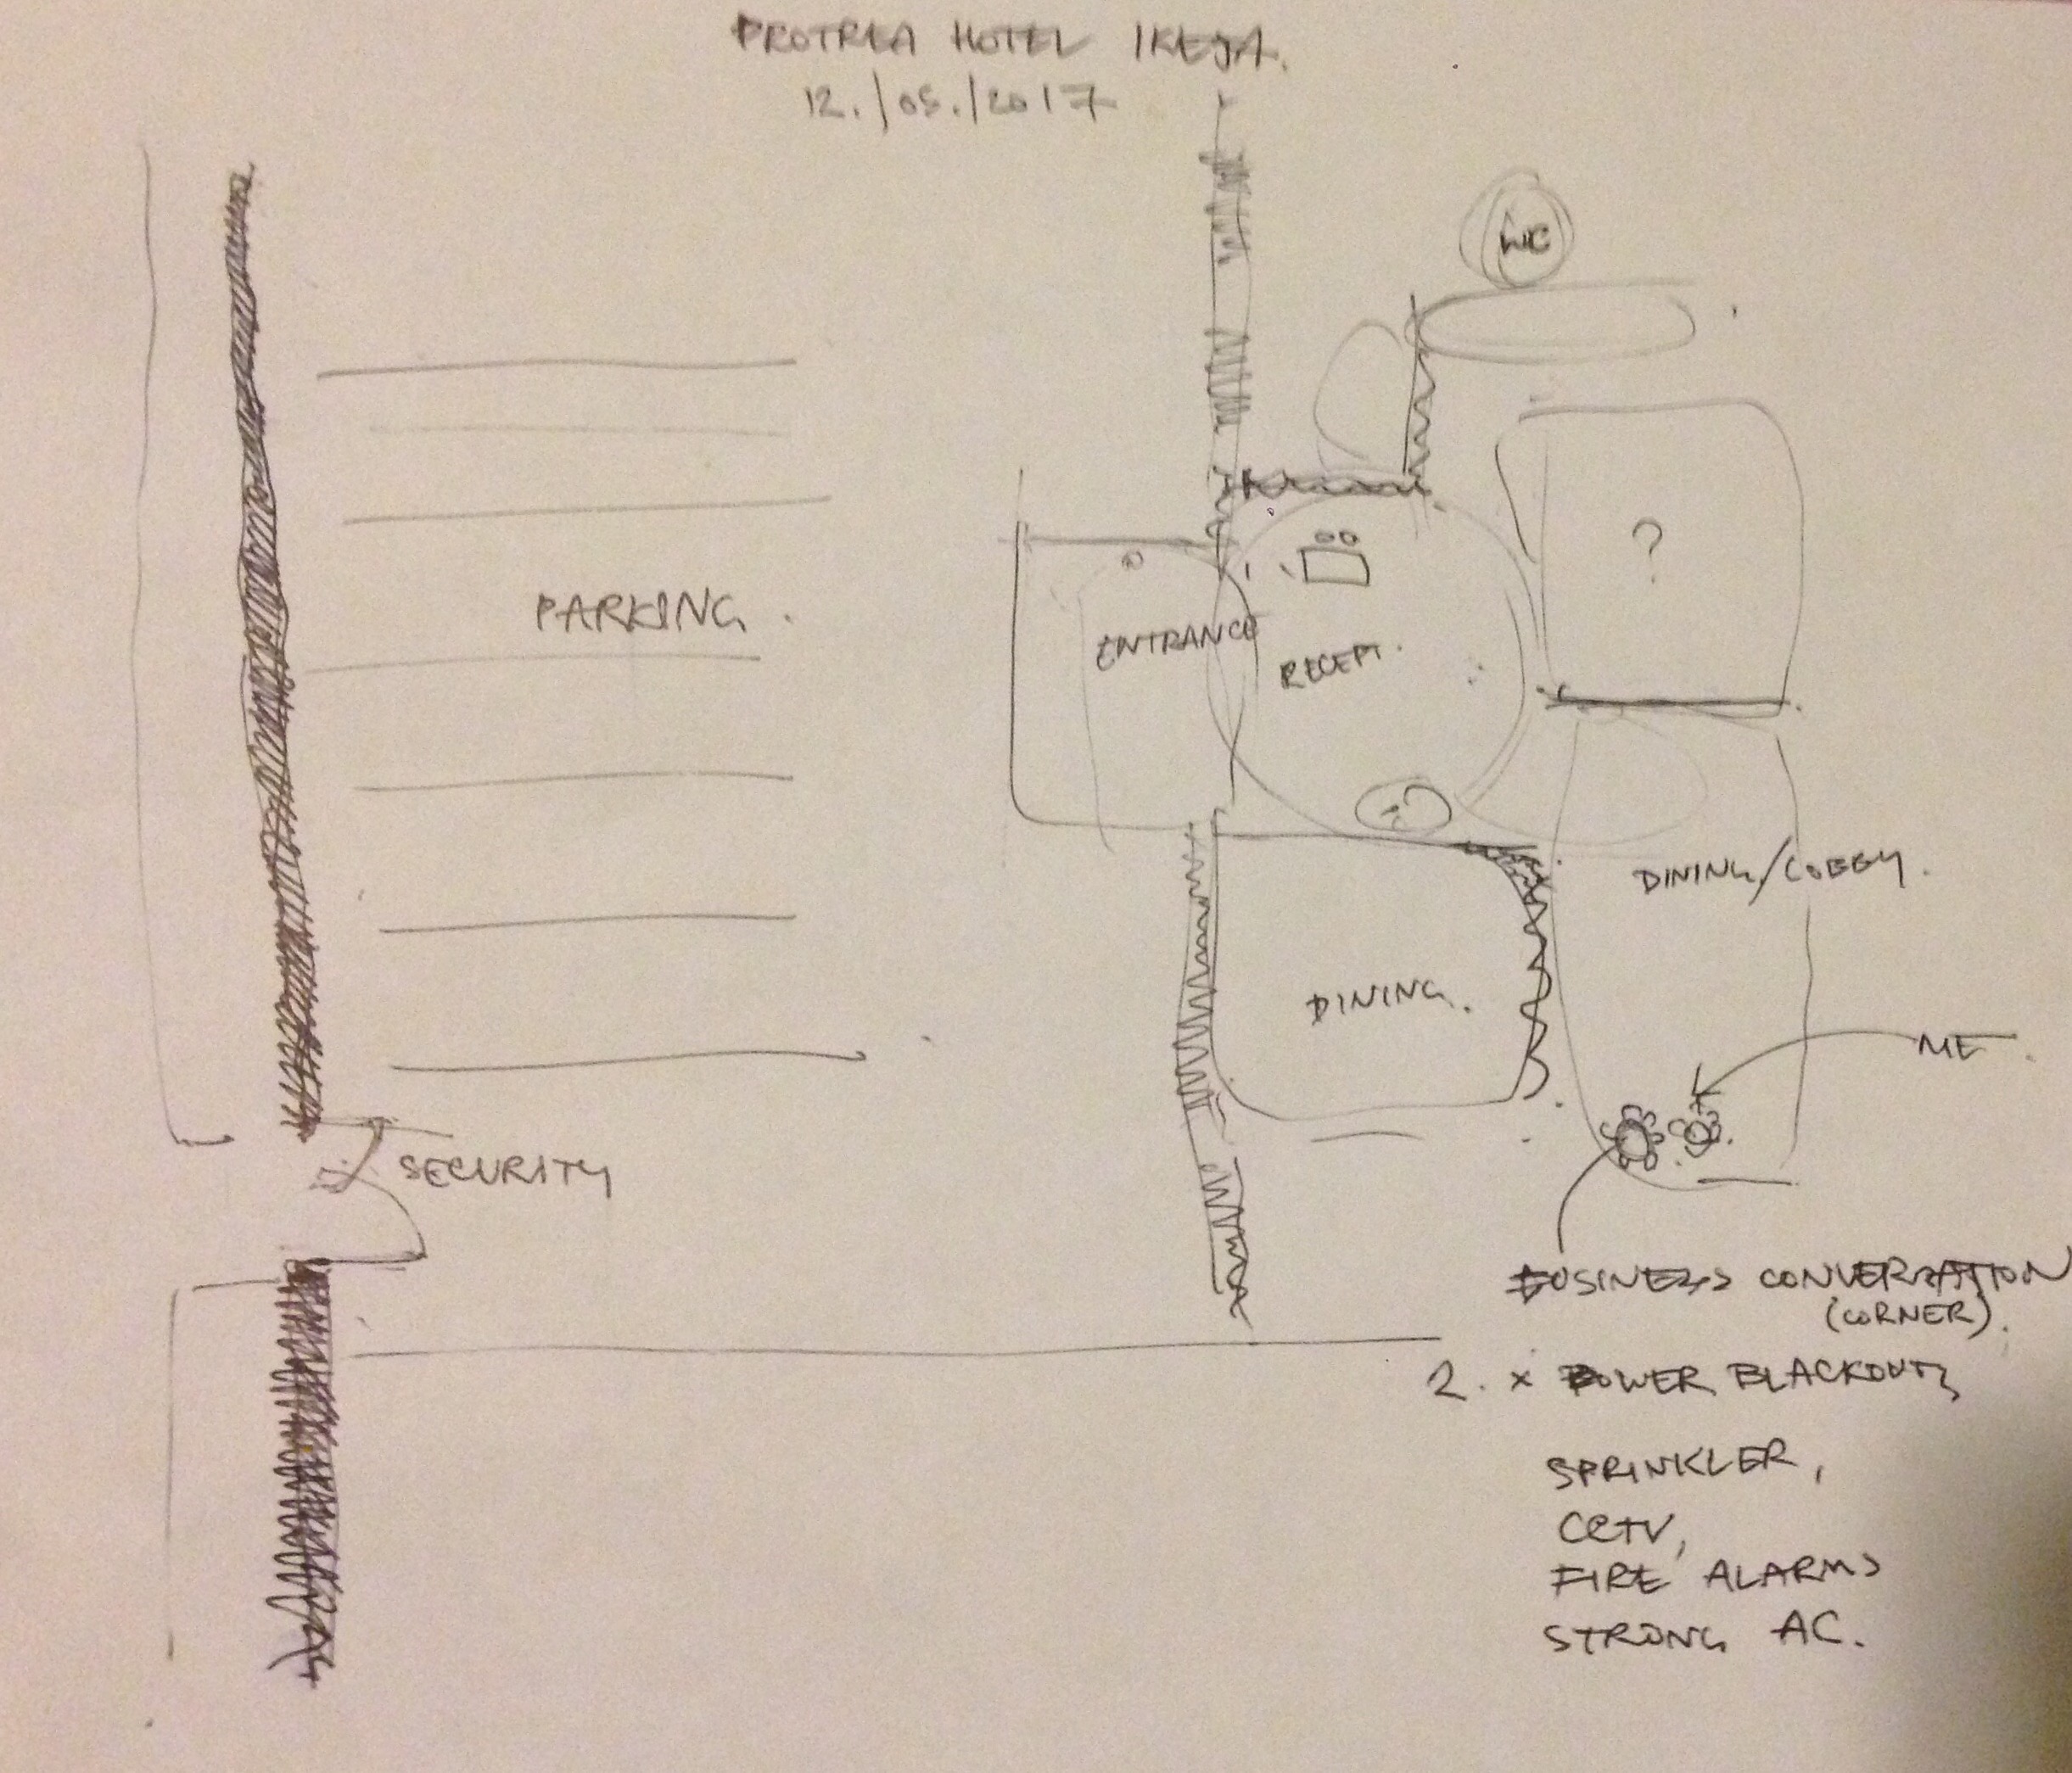 PROTREA HOTEL IKEJA.
12./05./2017
WC
?
PARKING.
ENTRANCE
RECEPT.
DINING/LOBBY.
DINING.
ME.
SECURITY
BUSINESS CONVERZATION
(CORNER).
2. x POWER BLACKOUTS
SPRINKLER,
CCTV,
FIRE ALARMS
STRONG AC.